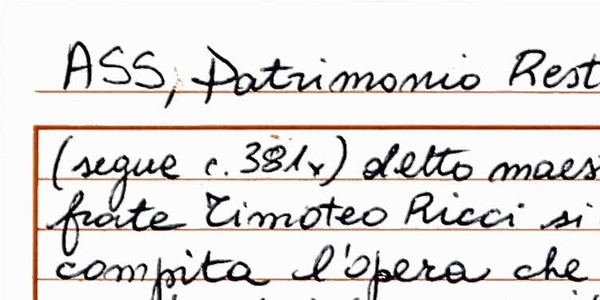 ASS, Patrimonio Rest
(segue c. 381v) detto maes
frate Timoteo Ricci si
compita l'opera che